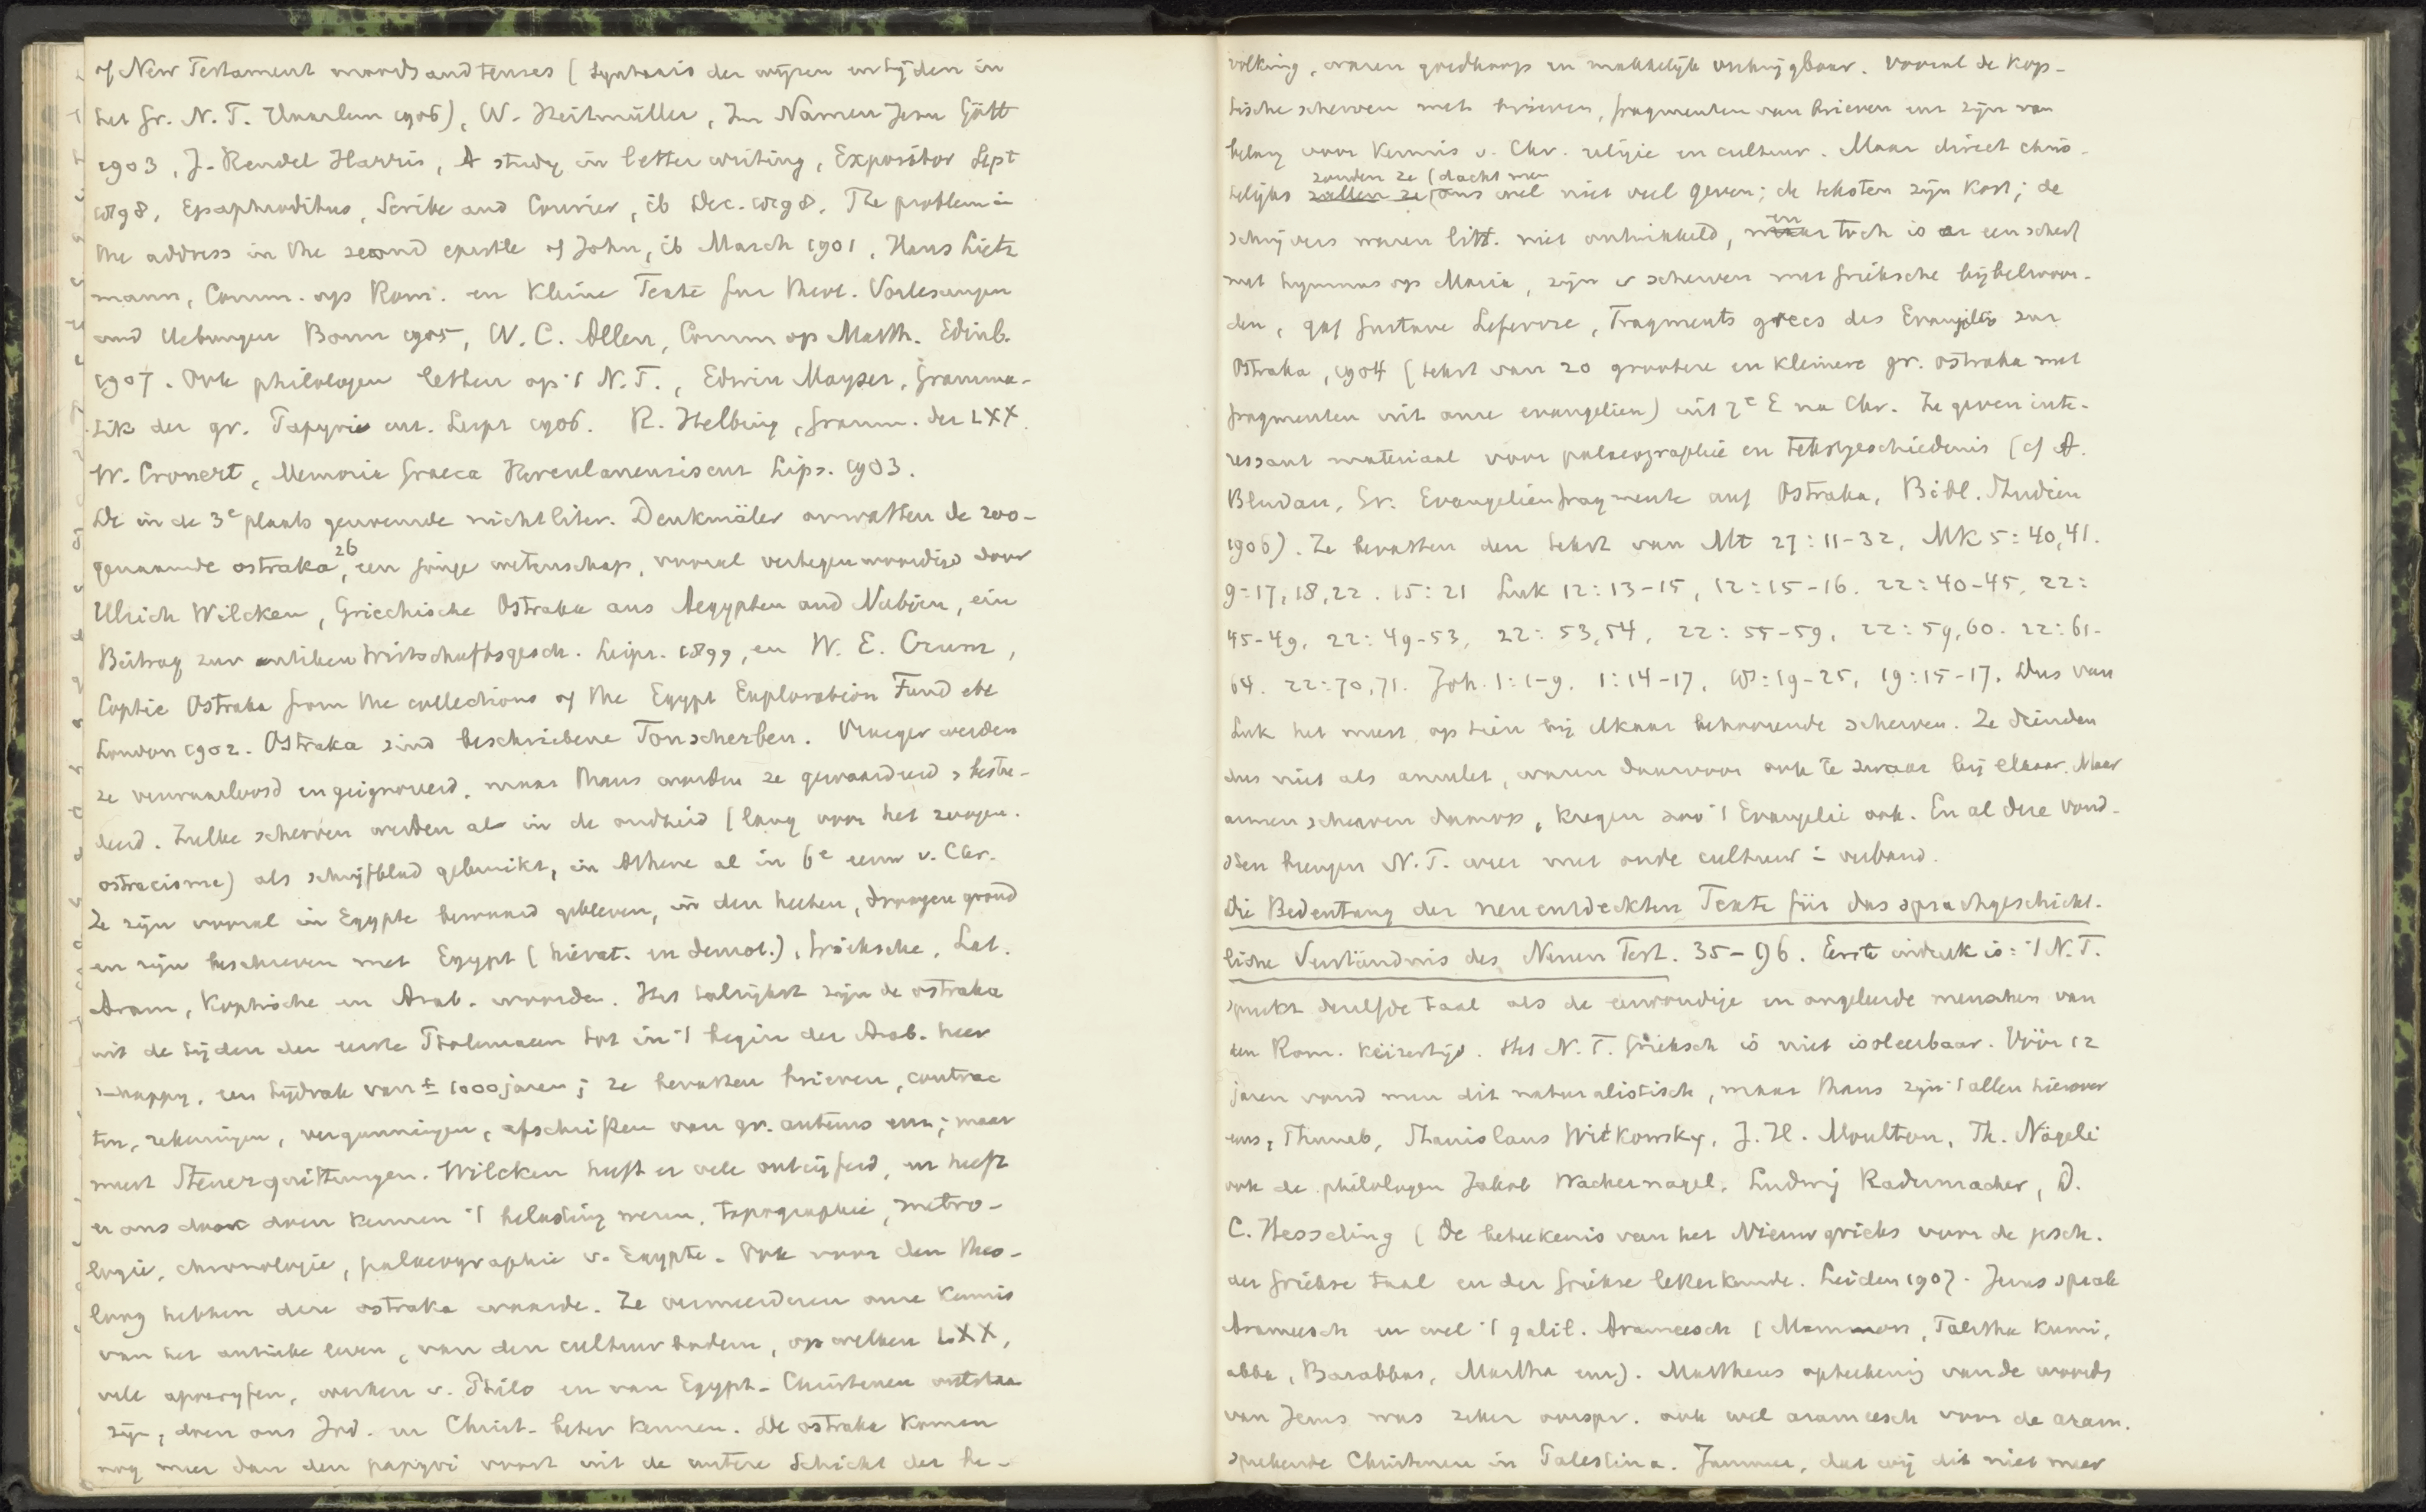 of New Testament moods and tenses (Syntaxis der wijzen en tijden in
het Gr. N. T. Haarlem 1906), W. Heitmüller, Im Namen Jesu Gött
1903, J. Rendel Harris, A study in letter writing, Expositor Sept
1898, Epaphroditus, Scribe and Courier, ib Dec. 1898. The problem in
the address in the second epistle of John, ib March 1901, Hans Lietz
mann, Comm. op Rom. en Kleine Texte fur theol. Vorlesungen
und Uebungen Bonn 1905, W. C. Allen, Comm op Matth. Edinb.
1907. Ook philologen letten op 't N. T., Edwin Mayser, Gramma-
tik der gr. Papyri enz. Leipz 1906. R. Helbing, Gramm. der LXX.
W. Cronert, Memoria Graeca Herculanensis enz Lips. 1903.
De in de 3e plaats genoemde nichtliter. Denkmäler omvatten de zoo-
genaamde ostraka, 26 een jonge wetenschap, vooral vertegenwoordigd door
Ulrich Wilcken, Griechische Ostraka aus Aegypten und Nubien, ein
Beitrag zur antiken Wirtschaftsgesch. Leipz. 1899, en W. E. Crum,
Coptic Ostraka from the collections of the Egypt Exploration Fund etc
London 1902. Ostraka sind beschriebene Tonscherben. Vroeger werden
ze verwaarloosd en geignoreerd, maar thans worden ze gewaardeerd & bestu-
deerd. Zulke scherven werden al in de oudheid (lang voor het zoogen.
ostracisme) als schrijfblad gebruikt, in Athene al in 6e eeuw v. Chr.
Ze zijn vooral in Egypte bewaard gebleven, in den heeten, droogen grond
en zijn beschreven met Egypt (hierat. en demot.), Grieksche, Lat.
Aram, Koptische en Arab. woorden. Het talrijkst zijn de ostraka
uit de tijden der eerste Ptolemaeen tot in 't begin der Arab. heer
schappy, een tijdvak van ± 1000 jaren; ze bevatten brieven, contrac
ten, rekeningen, vergunningen, afschriften van gr. auteurs enz; maar
meest Steuerquittungen. Wilcken heeft er vele ontcijferd, en heeft
er ons door doen kennen 't belasting wezen, topographie, metro-
logie, chronologie, palaeographie v. Egypte. Ook voor den theo-
loog hebben deze ostraka waarde. Ze vermeerderen onze kennis
van het antieke leven, van den cultuur bodem, op welken LXX,
vele apocryfen, werken v. Philo en van Egypt. Christenen ontstaan
zijn, doen ons Jod. en Christ. beter kennen. De ostraka komen
nog meer dan den papyri voort uit de untere Schicht der be-
volking, waren goedkoop en makkelijk verkrijgbaar. Vooral de Kop-
tische scherven met brieven, fragmenten van brieven enz zijn van
belang voor kennis v. Chr. religie en cultuur. Maar direct chris-
zouden ze (dacht men
telijks zullen ze ons wel niet veel geven; de teksten zijn kort; de
schrijvers waren litt. niet ontwikkeld, maar en toch is er een scherf
met hymnus op Maria, zijn er scherven met Grieksche bijbelwoor-
den, gaf Gustave Lefebvre, Fragments grecs des Evangiles sur
Ostraka, 1904 (tekst van 20 grootere en kleinere gr. ostraka met
fragmenten uit onze evangelien) uit 7e E na Chr. Ze geven inte-
ressant materiaal voor palaeographie en tekstgeschiedenis (cf A.
Bludau, Gr. Evangelienfragmente auf Ostraka, Bibl. Studien
1906). Ze bevatten den tekst van Mt 27:11-32, Mk 5:40,41.
9:17,18,22. 15:21 Luk 12:13-15, 12:15-16. 22:40-45, 22:
45-49, 22:49-53, 22:53,54, 22:55-59, 22:59,60. 22:61-
64. 22:70,71. Joh. 1:1-9. 1:14-17, 18:19-25, 19:15-17. Dus van
Luk het meest, op tien bij elkaar behoorende scherven. Ze dienden
dus niet als amulet, waren daarvoor ook te zwaar bij elkaar. Maar
armen schreven daarop, kregen zoo 't Evangelie ook. En al deze vond-
sten brengen N. T. weer met oude cultuur in verband.
Die Bedeutung der neuentdeckten Texte für das sprachgeschicht-
liche Verständnis des Neuen Test. 35-96. Eerste indruk is: 't N. T.
spreekt dezelfde taal als de eenvoudige en ongeleerde menschen van
den Rom. Keizertijd. Het N. T. Grieksch is niet isoleerbaar. Vóór 12
jaren vond men dit naturalistisch, maar thans zijn 't allen hierover
eens, Thumb, Stanislaus Witkowsky, J. H. Moulton, Th. Nägeli
ook de philologen Jakob Wackernagel, Ludwig Radermacher, D.
C. Hesseling (De betekenis van het Nieuwgrieks voor de gesch.
der Griekse taal en der Griekse letterkunde. Leiden 1907. Jezus sprak
Arameesch en wel 't galil. Arameesch (Mammon, Talitha Kumi,
abba, Barabbas, Martha enz). Mattheus opteekening van de woords
van Jezus was zeker oorspr. ook wel arameesch voor de aram.
sprekende Christenen in Palestina. Jammer, dat wij dit niet meer